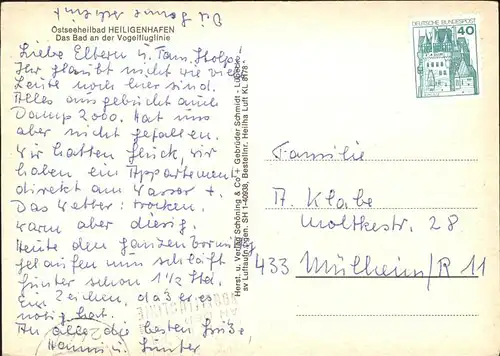 Ostseeheilbad HEILIGENHAFEN
Das Bad an der Vogelfluglinie
Liebe Eltern u. Fam. Stolpe!
Ihr glaubt nicht wie viele
Leute noch hier sind.
Alles ausgebucht auch
Damp 2000. Hat uns
aber nicht gefallen.
Wir hatten Glück, wir
haben ein Appartement
direkt am Wasser +.
Das Wetter: trocken,
warm aber diesig.
Heute den ganzen
gelaufen nun schläft
Günter schon 1 1/2 Std.
Ein Zeichen, daß er es
nötig hat.
An alle die besten Grüße,
Hanni u. Günter
Herst. u. Verlag Schöning & Co + Gebrüder Schmidt - Lübeck
SH 1-40938, Bestellnr. Heilha Luft KL 8178
DEUTSCHE BUNDESPOST
40
Familie
A. Klabe
Moltkestr. 28
433 Mülheim/R 11